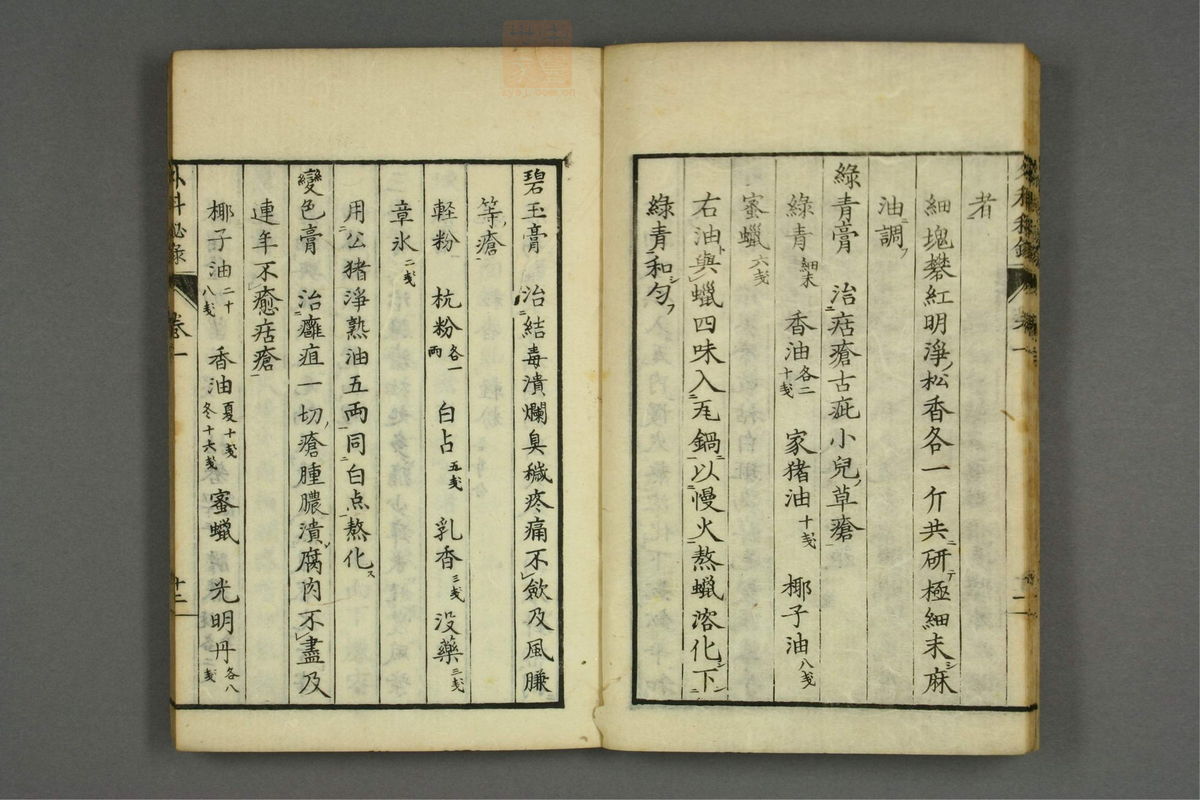 者
細塊礬紅明淨松香各一斤共研極細末麻
油調
綠青膏 治痁瘡古疵小兒草瘡
綠青細末 香油各二十戔 家猪油十戔 椰子油八戔
蜜蠟六戔
右油與蠟四味入瓦鍋以慢火熬蠟溶化下
綠青和匀
碧玉膏 治結毒潰爛臭穢疼痛不斂及風臁
等瘡
軽粉 杭粉各一兩 白占五戔 乳香三戔 没藥三戔
章氷二戔
用公猪淨熟油五兩同白点熬化
變色膏 治癰疽一切瘡腫膿潰腐肉不盡及
連年不癒痁瘡
椰子油二十八戔 香油夏十戔冬十六戔 蜜蠟 光明丹各八戔
外科秘录 卷一 十二